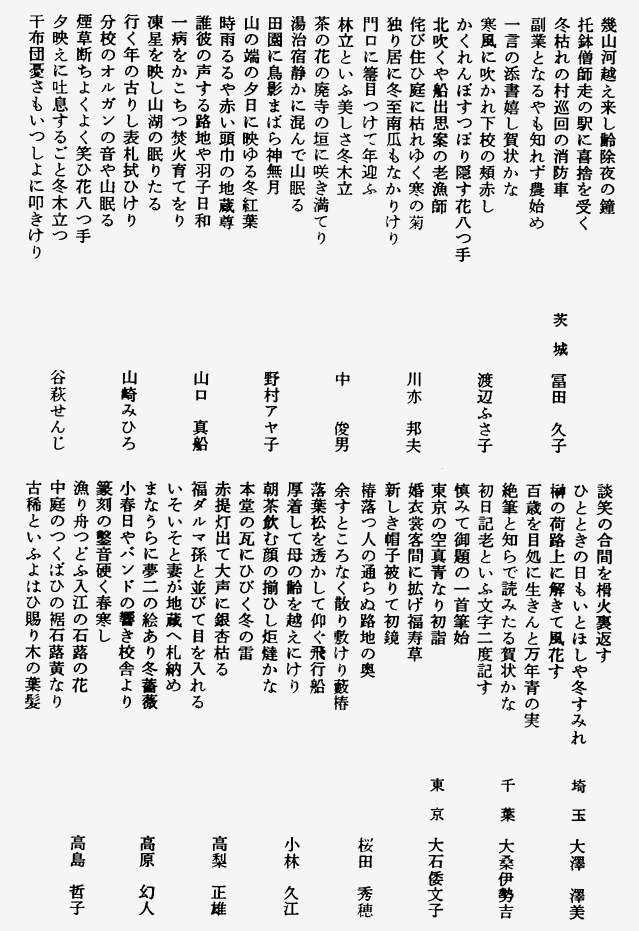 幾山河越え来し齢除夜の鐘
托鉢僧師走の駅に喜捨を受く
冬枯れの村巡回の消防車
茨城 冨田 久子
副業となるやも知れず農始め
一言の添書嬉し賀状かな
寒風に吹かれ下校の頬赤し
渡辺ふさ子
かくれんぼすつぽり隠す花八つ手
北吹くや船出思案の老漁師
侘び住ひ庭に枯れゆく寒の菊
川亦 邦夫
独り居に冬至南瓜もなかりけり
門口に箒目つけて年迎ふ
林立といふ美しさ冬木立
中 俊男
茶の花の廃寺の垣に咲き満てり
湯治宿静かに混んで山眠る
田園に鳥影まばら神無月
野村アヤ子
山の端の夕日に映ゆる冬紅葉
時雨るるや赤い頭巾の地蔵尊
誰彼の声する路地や羽子日和
山口 真船
一病をかこちつ焚火育てをり
凍星を映し山湖の眠りたる
行く年の古りし表札拭ひけり
山崎みひろ
分校のオルガンの音や山眠る
煙草断ちよくよく笑ひ花八つ手
夕映えに吐息するごと冬木立つ
谷萩せんじ
干布団憂さもいつしよに叩きけり
談笑の合間を榾火裏返す
ひとときの日もいとほしや冬すみれ
埼玉 大澤 澤美
榊の荷路上に解きて風花す
百歳を目処に生きんと万年青の実
絶筆と知らで読みたる賀状かな
千葉 大桑伊勢吉
初日記老といふ文字二度記す
慎みて御題の一首筆始
東京の空真青なり初詣
東京 大石倭文子
婚衣裳客間に拡げ福寿草
新しき帽子被りて初鏡
椿落つ人の通らぬ路地の奥
桜田 秀穂
余すところなく散り敷けり藪椿
落葉松を透かして仰ぐ飛行船
厚着して母の齢を越えにけり
小林 久江
朝茶飲む顔の揃ひし炬燵かな
本堂の瓦にひびく冬の雷
赤提灯出て大声に銀杏枯る
高梨 正雄
福ダルマ孫と並びて目を入れる
いそいそと妻が地蔵へ札納め
まなうらに夢二の絵あり冬薔薇
高原 幻人
小春日やバンドの響き校舎より
篆刻の鑿音硬く春寒し
漁り舟つどふ入江の石蕗の花
高島 哲子
中庭のつくばひの裾石蕗黄なり
古稀といふよはひ賜り木の葉髪